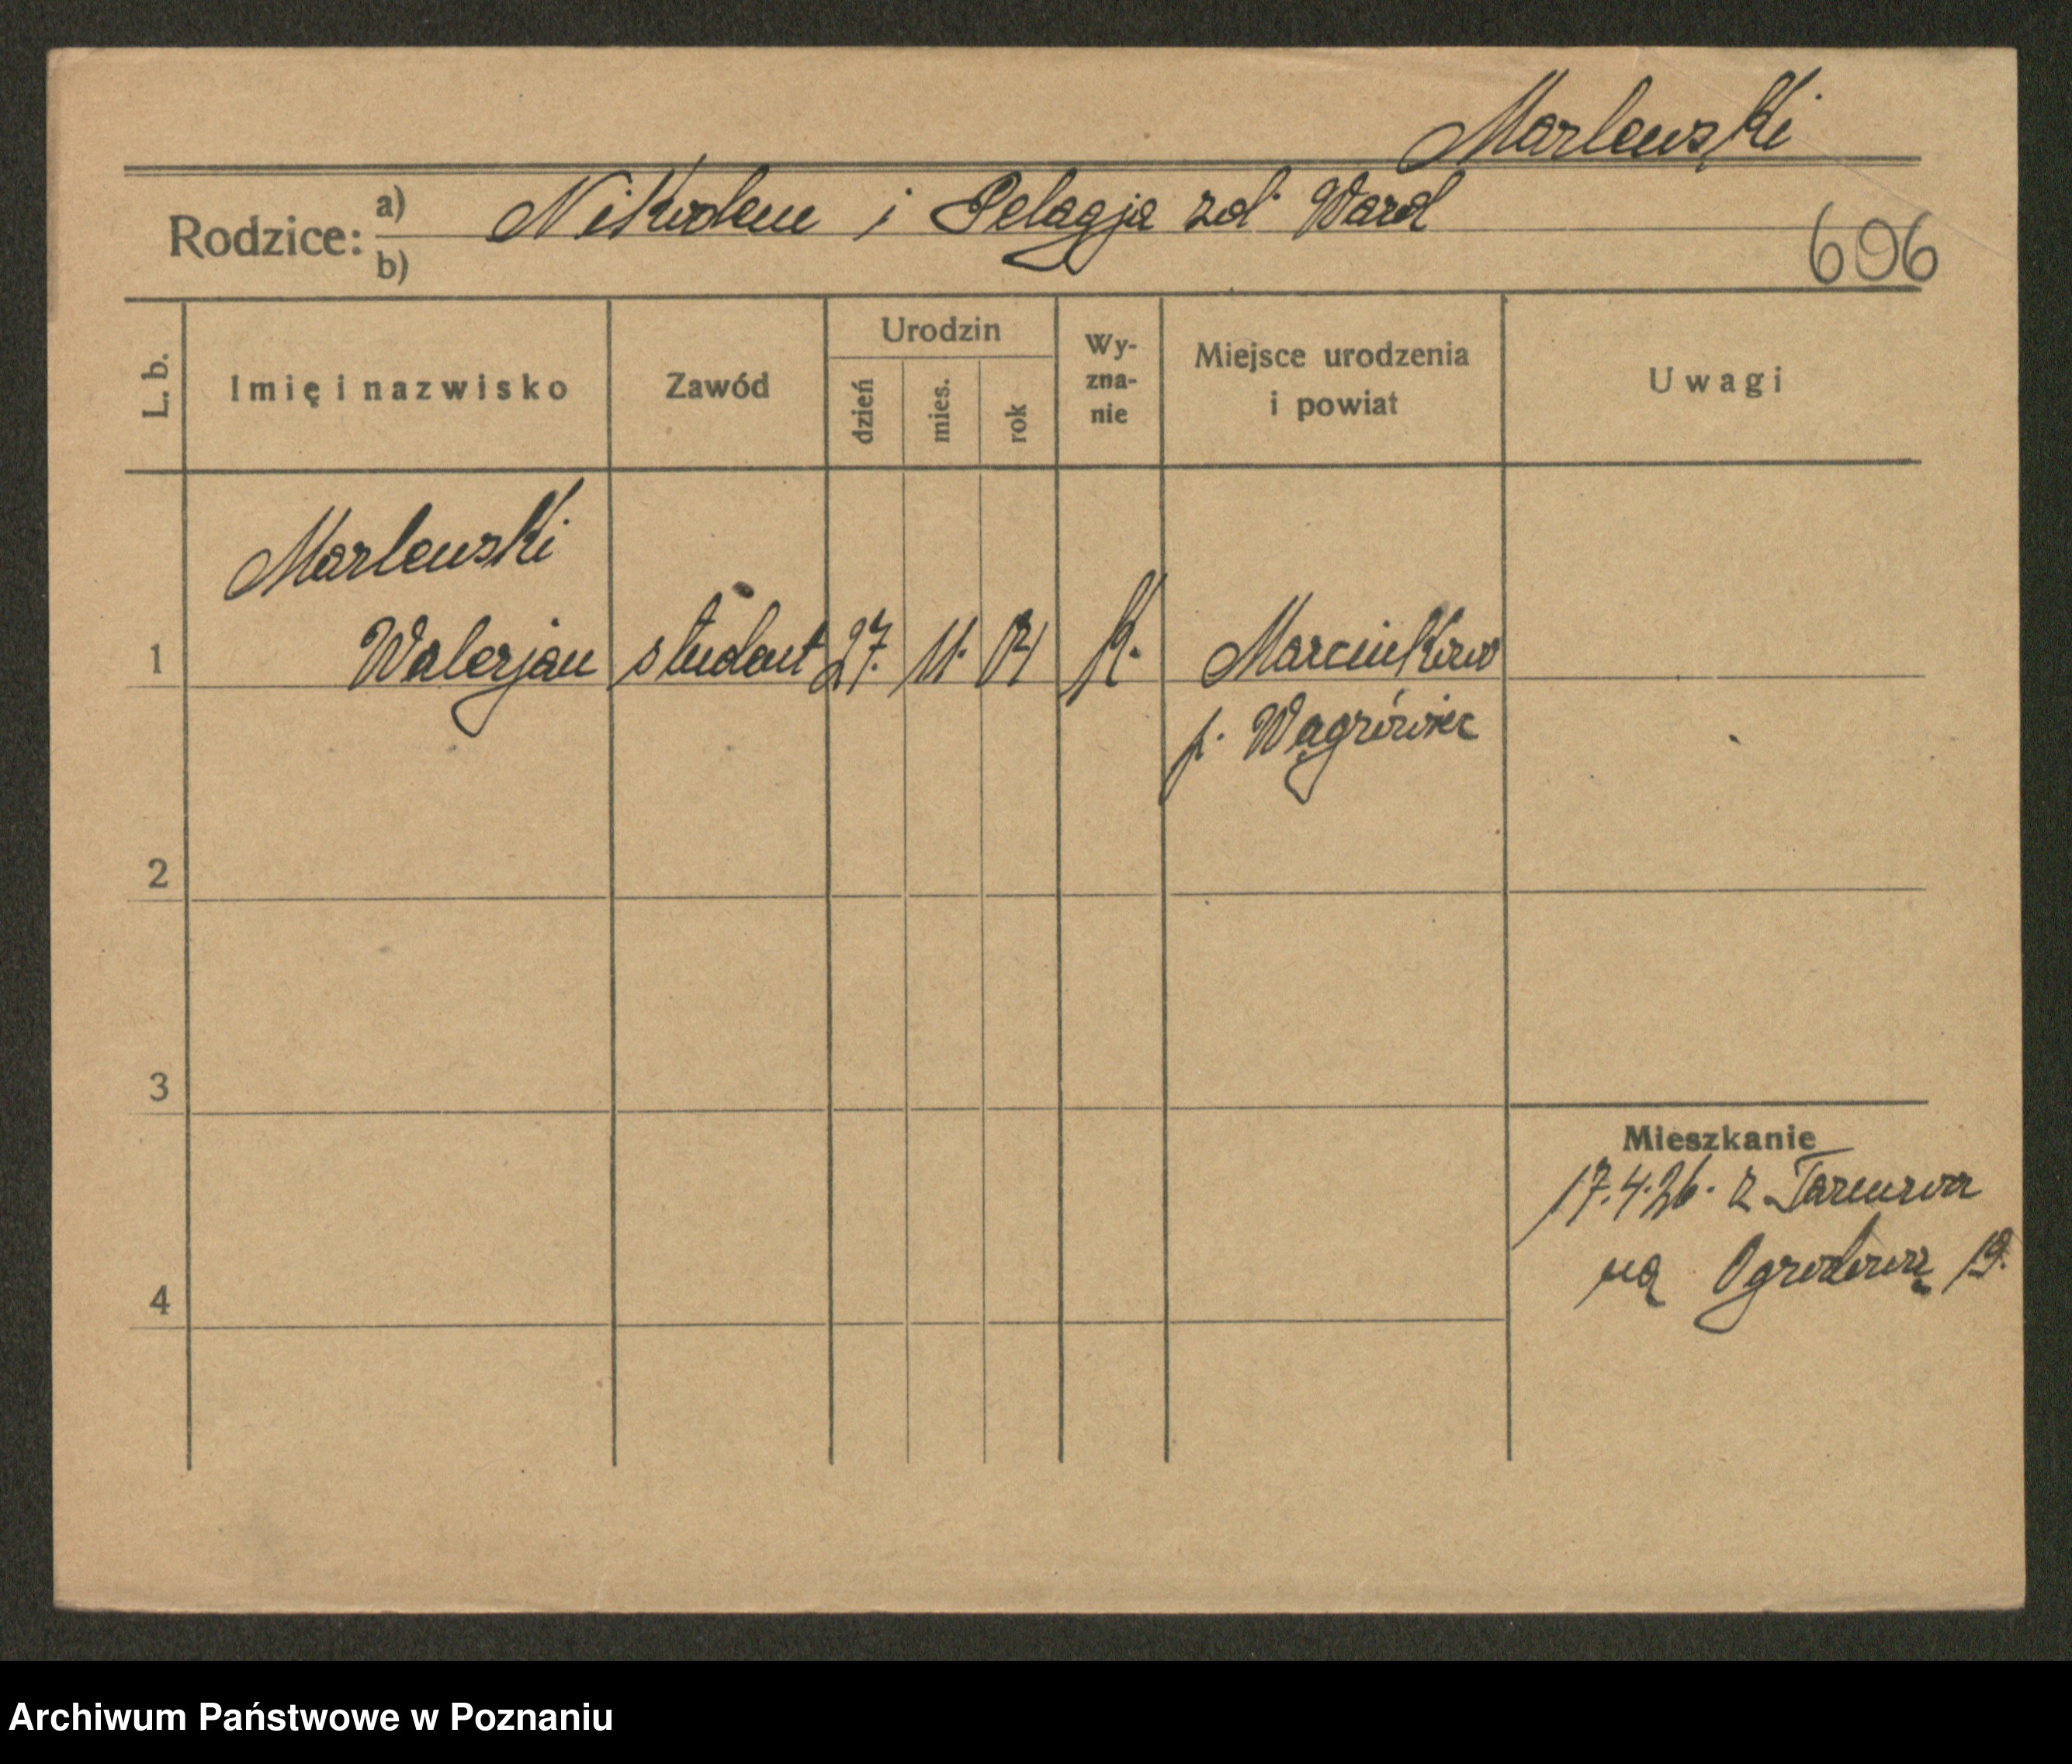 Marlewski
Rodzice: a) Nikodem i Pelagja zd. Ward
b)
606
L. b.
Imię i nazwisko
Zawód
Urodzin
dzień
mies.
rok
Wy-
zna-
nie
Miejsce urodzenia
i powiat
Uwagi
Marlewski
1 Walerjan student 27. 11. 04 K. Marcinkowo
p. Wągrówiec
2
3
Mieszkanie
17.4.26. z
na Ogrodową 19.
4
Archiwum Państwowe w Poznaniu